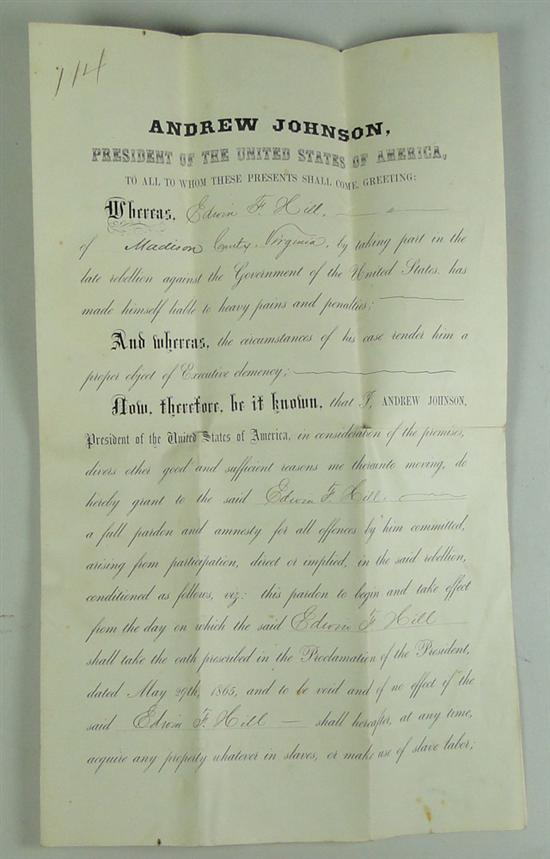 714
ANDREW JOHNSON,
PRESIDENT OF THE UNITED STATES OF AMERICA,
TO ALL TO WHOM THESE PRESENTS SHALL COME, GREETING:
Whereas, Edwin F. Hill,
of Madison County, Virginia, by taking part in the
late rebellion against the Government of the United States, has
made himself liable to heavy pains and penalties;
And whereas, the circumstances of his case render him a
proper object of Executive clemency;
Now, therefore, be it known, that I, ANDREW JOHNSON,
President of the United States of America, in consideration of the premises,
divers other good and sufficient reasons me thereunto moving, do
hereby grant to the said Edwin F. Hill,
a full pardon and amnesty for all offences by him committed,
arising from participation, direct or implied, in the said rebellion,
conditioned as follows, viz: this pardon to begin and take effect
from the day on which the said Edwin F Hill
shall take the oath prescribed in the Proclamation of the President,
dated May 29th, 1865, and to be void and of no effect if the
said Edwin F. Hill shall hereafter, at any time,
acquire any property whatever in slaves, or make use of slave labor;